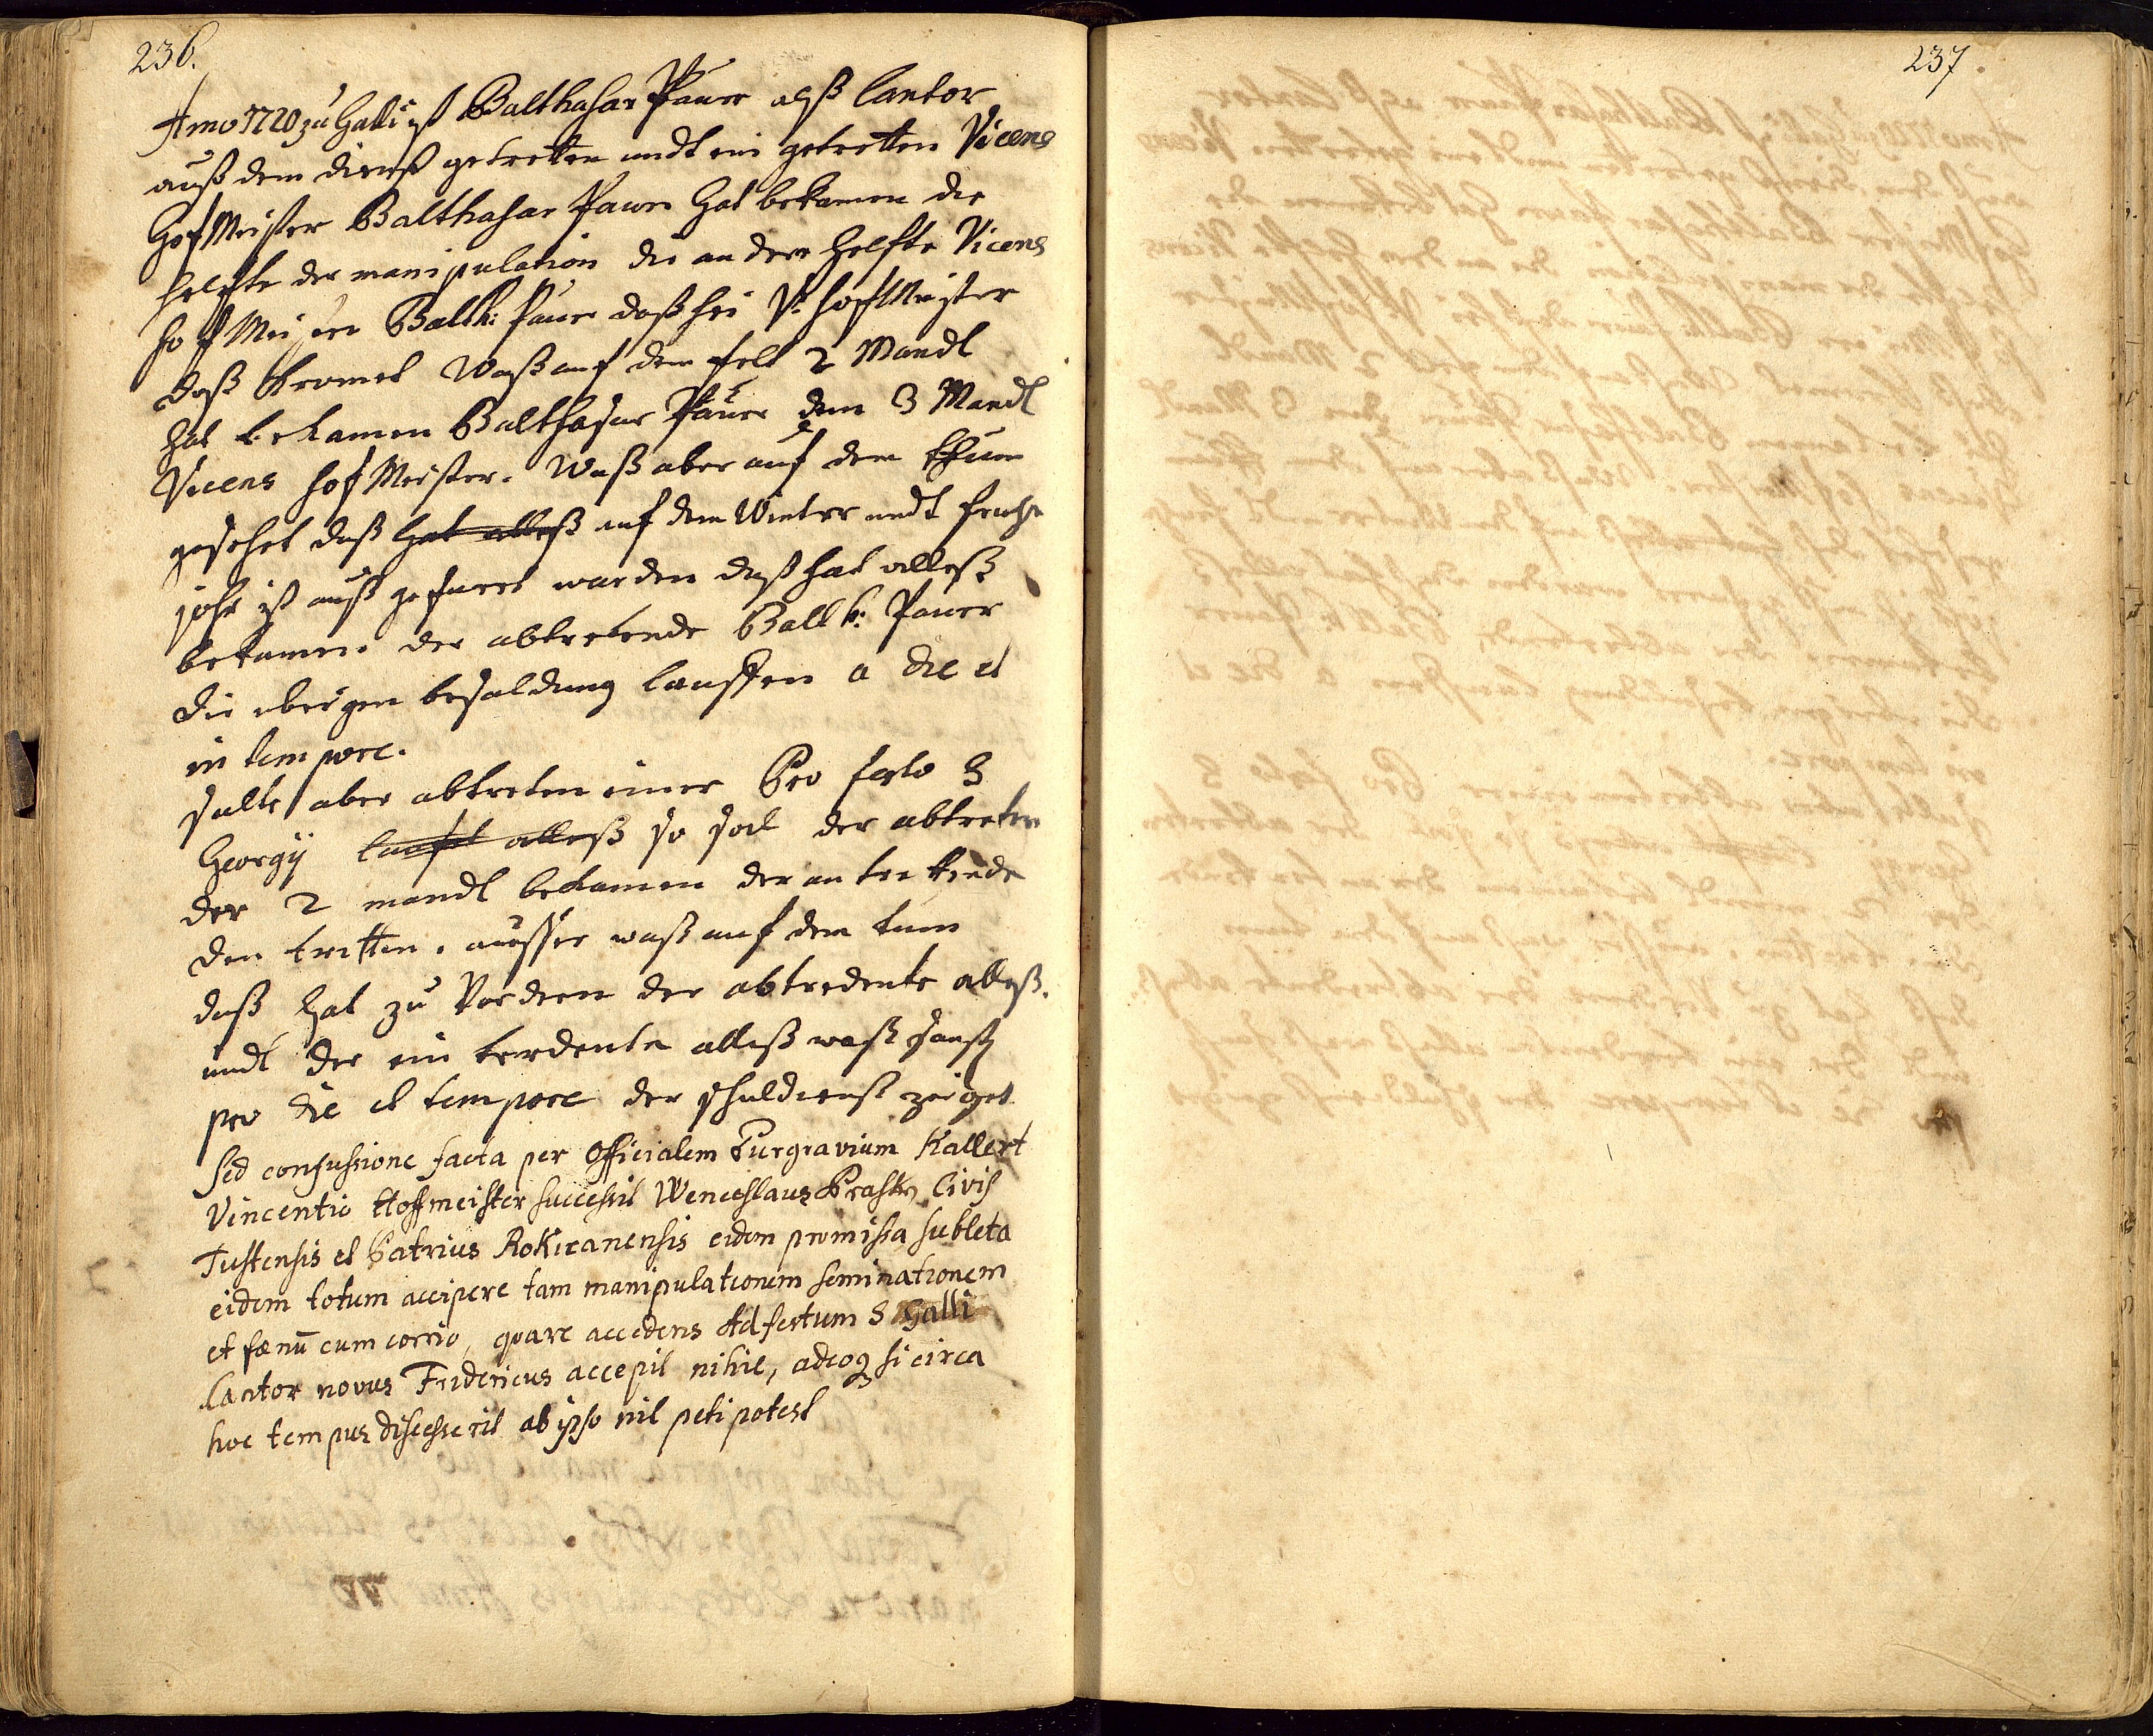 236.
Anno 1720 zu Galli ist Balthasar Pauer alß Cantor
auß dem dienst getretten undt ein getretten Vicens
HofMeister Balthasar Pauer Hat bekamen die
helfte der manipulation die andere helfte Vicens
hof Meister Balth: Pauer daß hei V: hoffMeister
daß kromet Waß auf dem felt 2 Mandl
hat bekamen Balthasar Pauer dem 3 Mandl
Vicens hof Meister. Waß aber auf dem
gesehet daß hat alleß auf dem Winter undt fruhe
johr ist auß gefuert warden daß hat alleß
bekamen der abtretende Balth: Pauer
die ubrigen besaldung lauffen a die et
in tempore.
salte aber abtreten einer Pro festo S
Georgÿ lauft alleß so sol der abtreter
der 2 mandl bekamen der an trettende
den tritten. ausser waß auf dem tum
daß hat zu Vordern der abtredente alleß.
undt der ein tredente alleß waß sonst
pro die et tempore der schuldienst zeiget
Sed confussione facta per Officialem Purgravium Kallert
Vincentio Hoffmeister successit Wenceslaus Prasky Civis
Tustensis et Patrius Rokicanensis eidem promissa subleta
eidem totum accipere tam manipulationem seminationem
et fænū cum corrio, quare accedens Ad festum S Galli
Cantor novus Fridericus accepit nihil, adeoq si circa
hoc tempus discesserit ab ipso nil peti potest
237